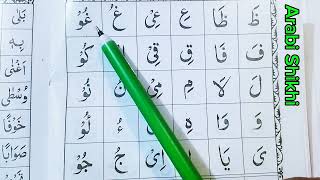 ظَ ظَا عِ عِىْ غُ غُوْ
فَ فَا قِ قِىْ كُوْ
لَ لَا مِ مِىْ نُ نُوْ
وَ وَا هِ ءُ
ىَ يَا اِىْ جُ جُوْ
بَلٰى
بِهٖ
اَغْنٰى
وُسْطٰى
خَوْفًا
صَوَابًا
Arabi Shikhi